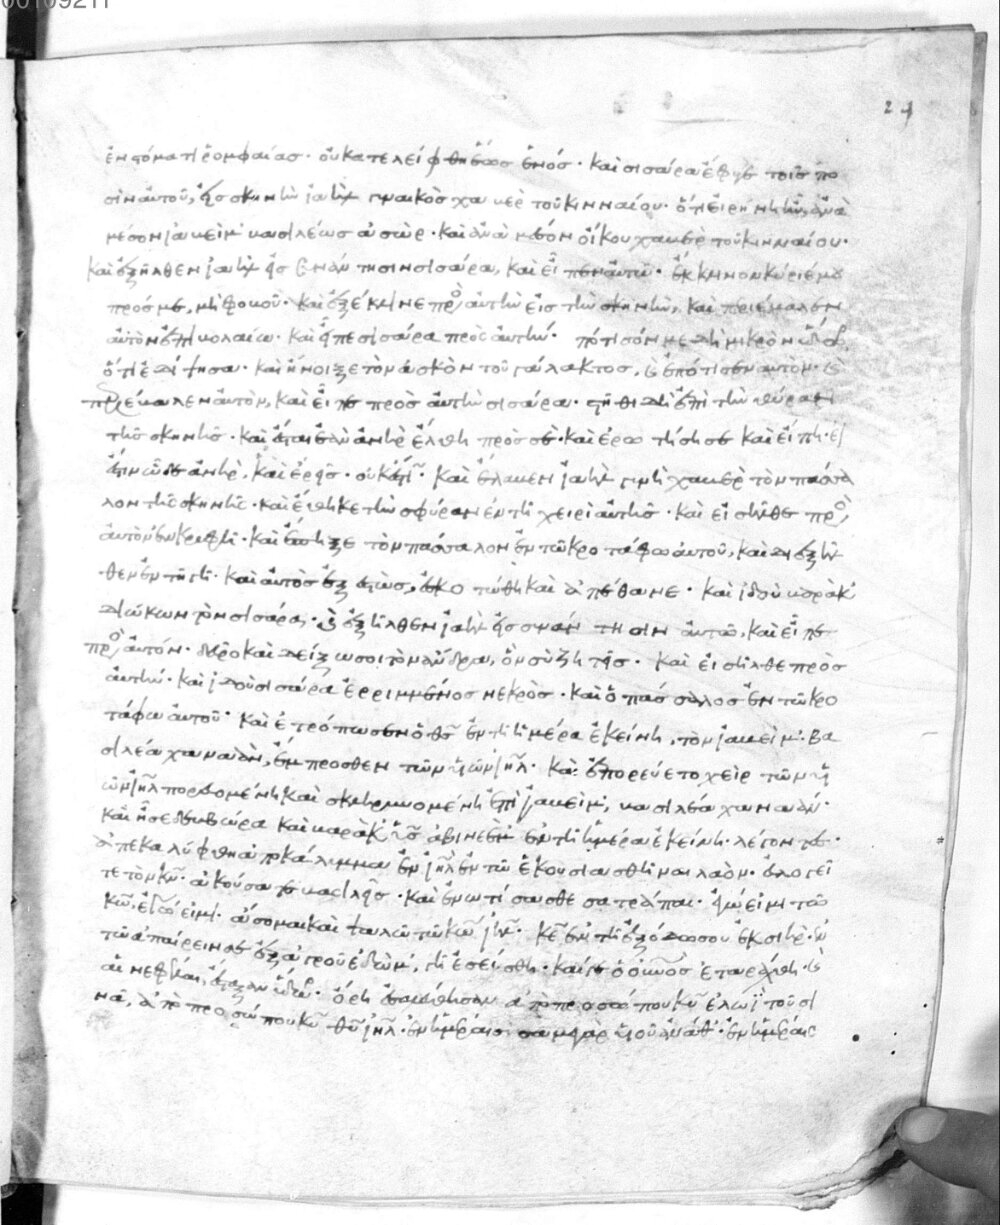 00109211
24
ἐν στόματι ῥομφαίας· οὐ κατελείφθη ἕως ἑνός· καὶ σισάρα ἔφυγε τοῖς πο
σὶν αὐτοῦ, εἰς σκηνὴν ἰαὴλ γυναικὸς χαβὲρ τοῦ κινναίου· ὅτι εἰρήνη ἦν, ἀνὰ
μέσον ἰαβεὶμ βασιλέως ἀσώρ· καὶ ἀνὰ μέσον οἴκου χαβὲρ τοῦ κινναίου·
καὶ ἐξῆλθεν ἰαὴλ εἰς συνάντησιν σισάρα, καὶ εἶπεν αὐτῶ· ἔκκλινον κύριέ μου
πρός με, μὴ φοβοῦ· καὶ ἐξέκλινε πρὸς αὐτὴν εἰς τὴν σκηνὴν, καὶ περιέβαλεν
αὐτὸν ἐπιβολαίω· καὶ εἶπε σισάρα πρὸς αὐτήν· πότισόν με δὴ μικρὸν ὕδωρ,
ὅτι ἐδίψησα· καὶ ἤνοιξε τὸν ἀσκὸν τοῦ γάλακτος, καὶ ἐπότισεν αὐτὸν· καὶ
περιέβαλεν αὐτὸν, καὶ εἶπε πρὸς αὐτὴν σισάρα· στῆθι δὴ ἐπὶ τὴν θύραν
τῆς σκηνῆς· καὶ ἔσται ἐὰν ἀνὴρ ἔλθη πρὸς σὲ· καὶ ἐρωτήση σε καὶ εἴπη· εἰ
ἔστιν ὧδε ἀνὴρ, καὶ ἐρεῖς· οὐκ ἔστι· καὶ ἔλαβεν ἰαὴλ γυνὴ χαβὲρ τὸν πάσσα
λον τῆς σκηνῆς· καὶ ἔθηκε τὴν σφύραν ἐν τῆ χειρὶ αὐτῆς· καὶ εἰσῆλθε πρὸς
αὐτὸν ἐν κρυφῆ· καὶ ἔπηξε τὸν πάσσαλον ἐν τῶ κροτάφω αὐτοῦ, καὶ διεξῆλ
θεν ἐν τῆ γῆ· καὶ αὐτὸς ἐξεστὼς, ἐσκοτώθη καὶ ἀπέθανε· καὶ ἰδοὺ βαρὰκ
διώκων τὸν σισάρα· καὶ ἐξῆλθεν ἰαὴλ εἰς συνάντησιν αὐτῶ, καὶ εἶπε
πρὸς αὐτόν· δεῦρο καὶ δείξω σοι τὸν ἄνδρα, ὃν σὺ ζητεῖς· καὶ εἰσῆλθε πρὸς
αὐτήν· καὶ ἰδοὺ σισάρα ἐρριμμένος νεκρὸς· καὶ ὁ πάσσαλος ἐν τῶ κρο
τάφω αὐτοῦ· καὶ ἐτρόπωσεν ὁ θς ἐν τῆ ἡμέρα ἐκείνη, τὸν ἰαβεὶμ βα
σιλέα χαναὰν, ἔμπροσθεν τῶν υἱῶν ιηλ· καὶ ἐπορεύετο χεὶρ τῶν υἱ
ῶν ιηλ πορευομένη καὶ σκληρυνομένη ἐπὶ ἰαβεὶμ, βασιλέα χαναάν·
καὶ ᾖσε δεββώρα καὶ βαρὰκ υἱὸς ἀβινεὲμ ἐν τῆ ἡμέρα ἐκείνη λέγοντες·
ἀπεκαλύφθη ἀποκάλυμμα ἐν ιηλ ἐν τῶ ἑκουσιασθῆναι λαὸν· εὐλογεῖ
τε τὸν κν· ἀκούσατε βασιλεῖς· καὶ ἐνωτίσασθε σατράπαι· ἐγώ εἰμι τῶ
κω, ἐγώ εἰμι· ἄσομαι καὶ ψαλῶ τῶ κω θω ιηλ· κε ἐν τῆ ἐξόδω σου ἐκ σηὶρ· ἐν
τῶ ἀπαίρειν σε ἐξ ἀγροῦ ἐδὼμ, γῆ ἐσείσθη· καί γε ὁ οὐνος ἐταράχθη· καὶ
αἱ νεφέλαι, ἔσταξαν ὕδωρ· ὄρη ἐσαλεύθησαν ἀπὸ προσώπου κυ ἐλωὶ τοῦ σι
νᾶ, ἀπὸ προσώπου κυ θυ ιηλ· ἐν ἡμέραις σαμεγὰρ υἱοῦ ἀνάθ· ἐν ἡμέραις